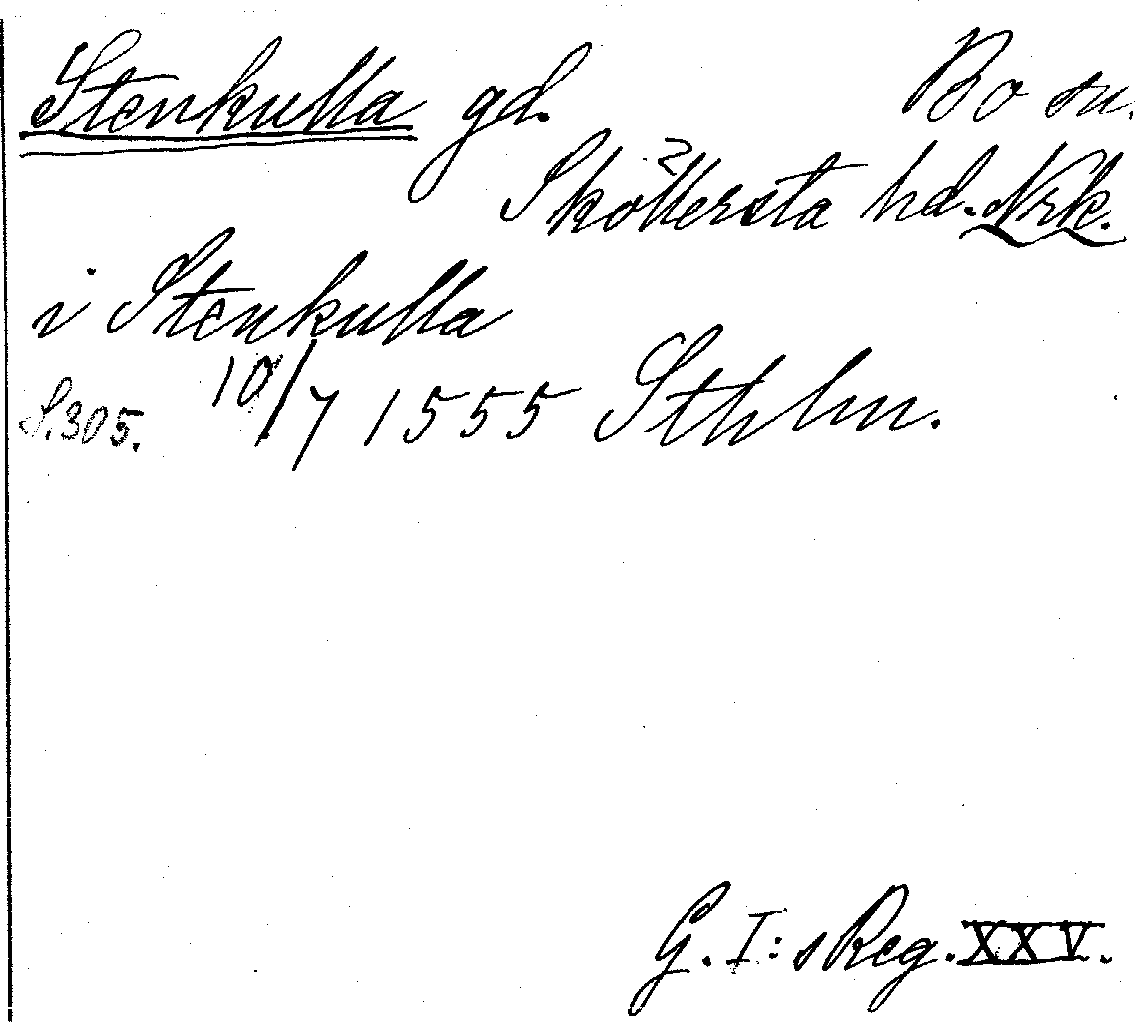 Stenkulla gd. Bo sn.
Sköllersta hd. Nrk.
i Stenkulla
S. 305. 10/7 1555 Sthlm.
G. I:s Reg. XXV.